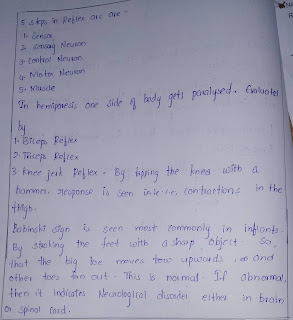 5 steps in Reflex arc are -
1. Sensor
2. Sensory Neuron
3. Control Neuron
4. Motor Neuron
5. Muscle
In hemiparesis one side of body gets paralysed. Evaluated
by
1. Biceps Reflex
2. Triceps Reflex
3. Knee jerk Reflex - By tapping the knee with a
hammer, response is seen i.e. contractions in the
thigh.
Babinski sign is seen most commonly in infants.
By stroking the feet with a sharp object. So,
that the big toe moves upwards, and
other toes fan out. This is normal. If abnormal,
then it indicates Neurological disorder either in brain
or spinal cord.